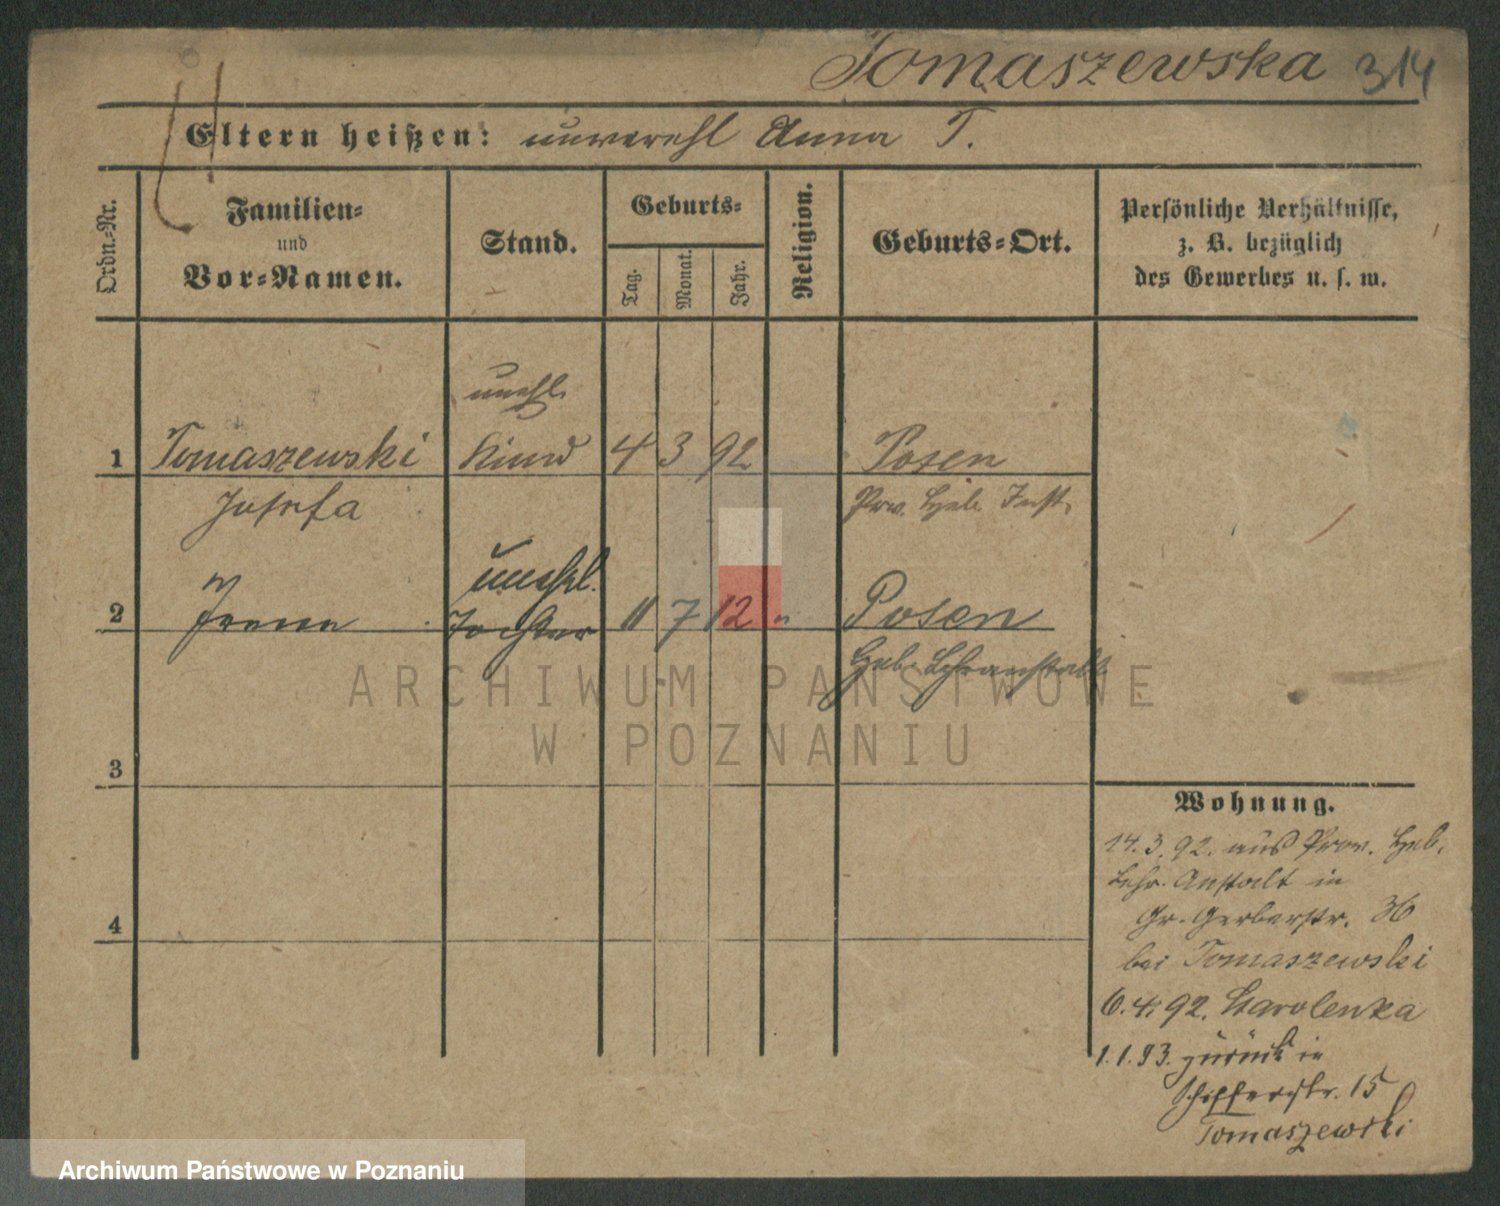 Tomaszewska 314
Eltern heißen: unverehl Anna T.
Ordn.-Nr.
Familien-
und
Vor-Namen.
Stand.
Geburts-
Tag.
Monat.
Jahr.
Religion.
Geburts-Ort.
Persönliche Verhältnisse,
z. B. bezüglich
des Gewerbes u. s. w.
unehl.
1 Tomaszewski Kind 4 3 92 Posen
Josefa Prov. Heb. Inst.
unehel.
2 Irene Tochter 11 7 12 Posen
Heb. Lehranstalt
3
4
Wohnung.
14.3.92. aus Prov. Heb.
Lehr. Anstalt in
Gr. Gerberstr. 36
bei Tomaszewski
6.4.92. Starolenka
1.1.93. zurück in
Schifferstr. 15
Tomaszewski
ARCHIWUM PAŃSTWOWE
W POZNANIU
Archiwum Państwowe w Poznaniu